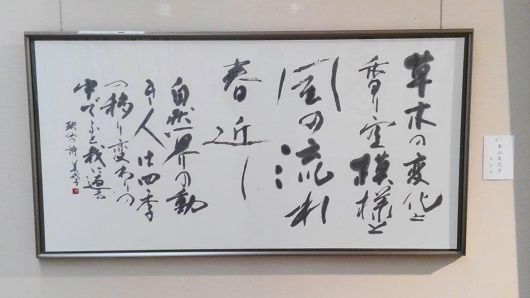 草木の変化と
香り空模様と
風の流れ
春近し
自然界の動
き人は四季
の移り変わりの
中でふと我に返る